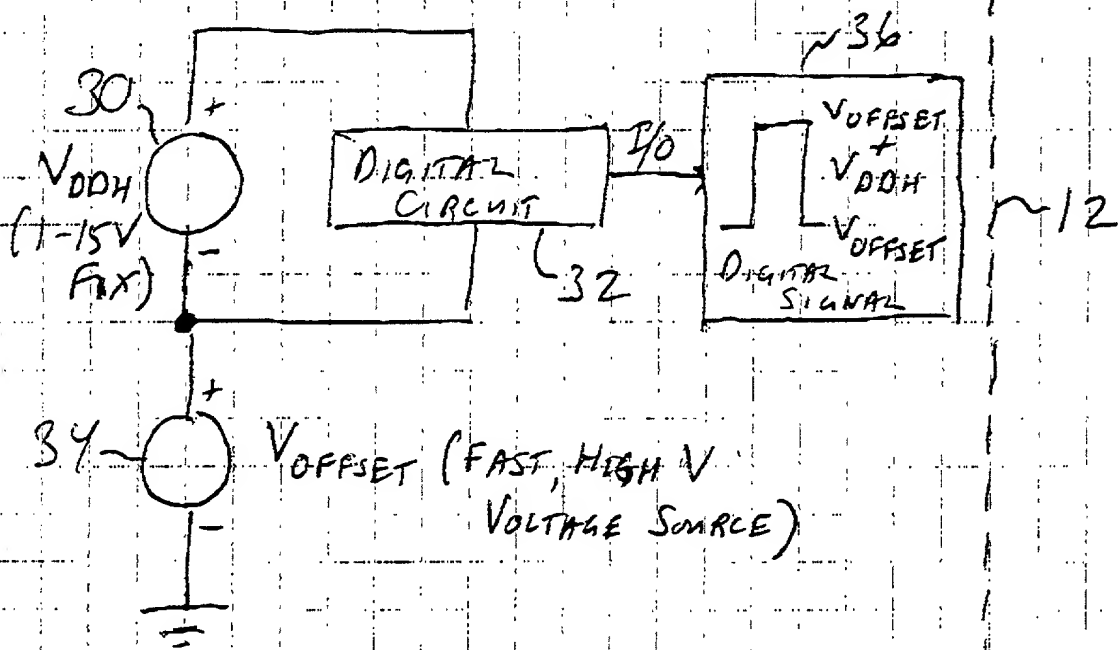 36
30
+
V DDH
(1-15V
FIX)
-
DIGITAL
CIRCUIT
32
I/O
VOFFSET
+
VDDH
VOFFSET
DIGITAL
SIGNAL
12
34
+
VOFFSET (FAST, HIGH V
VOLTAGE SOURCE)
-